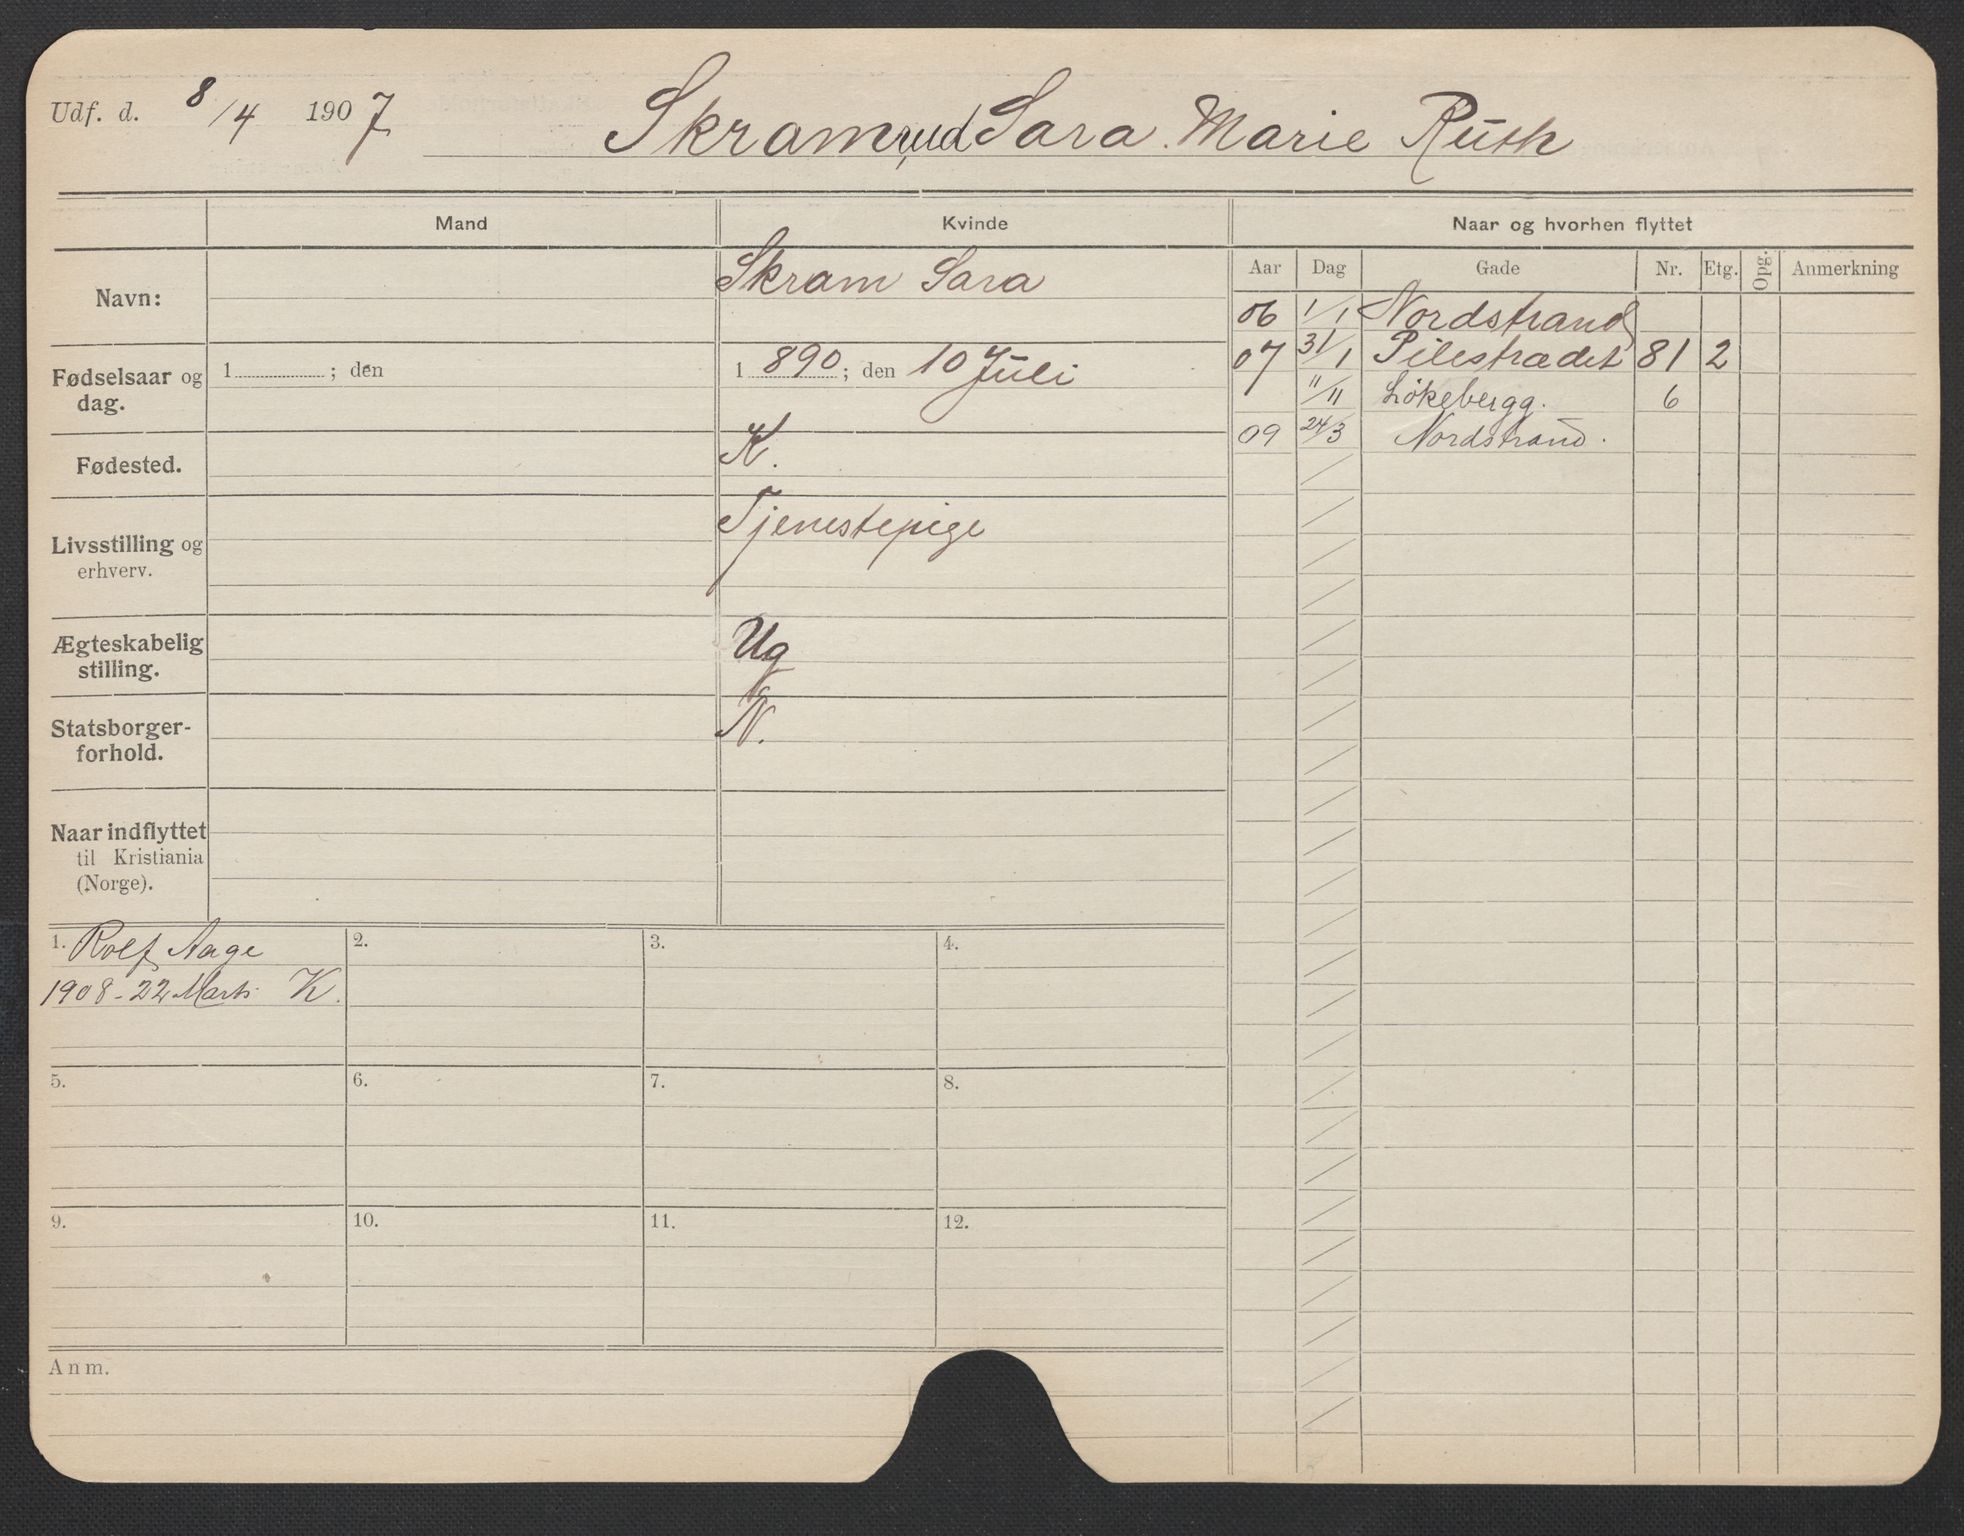 Udf. d. 8/4 1907 Skramrud Sara Marie Ruth
Mand
Kvinde
Naar og hvorhen flyttet
Navn:
Skram Sara
Fødselsaar og dag.
1 ; den
1 890; den 10 Juli
Fødested.
K.
Livsstilling og erhverv.
Tjenestepige
Ægteskabelig stilling.
Ug
Statsborger-
forhold.
N.
Naar indflyttet
til Kristiania
(Norge).
Aar Dag Gade Nr. Etg. Opg. Anmerkning
06 1/1 Nordstrand
07 31/1 Pilestrædet 81 2
11/11 Løkebergg. 6
09 24/3 Nordstrand.
1. Rolf Aage
1908-22 Marts K.
2.
3.
4.
5.
6.
7.
8.
9.
10.
11.
12.
Anm.